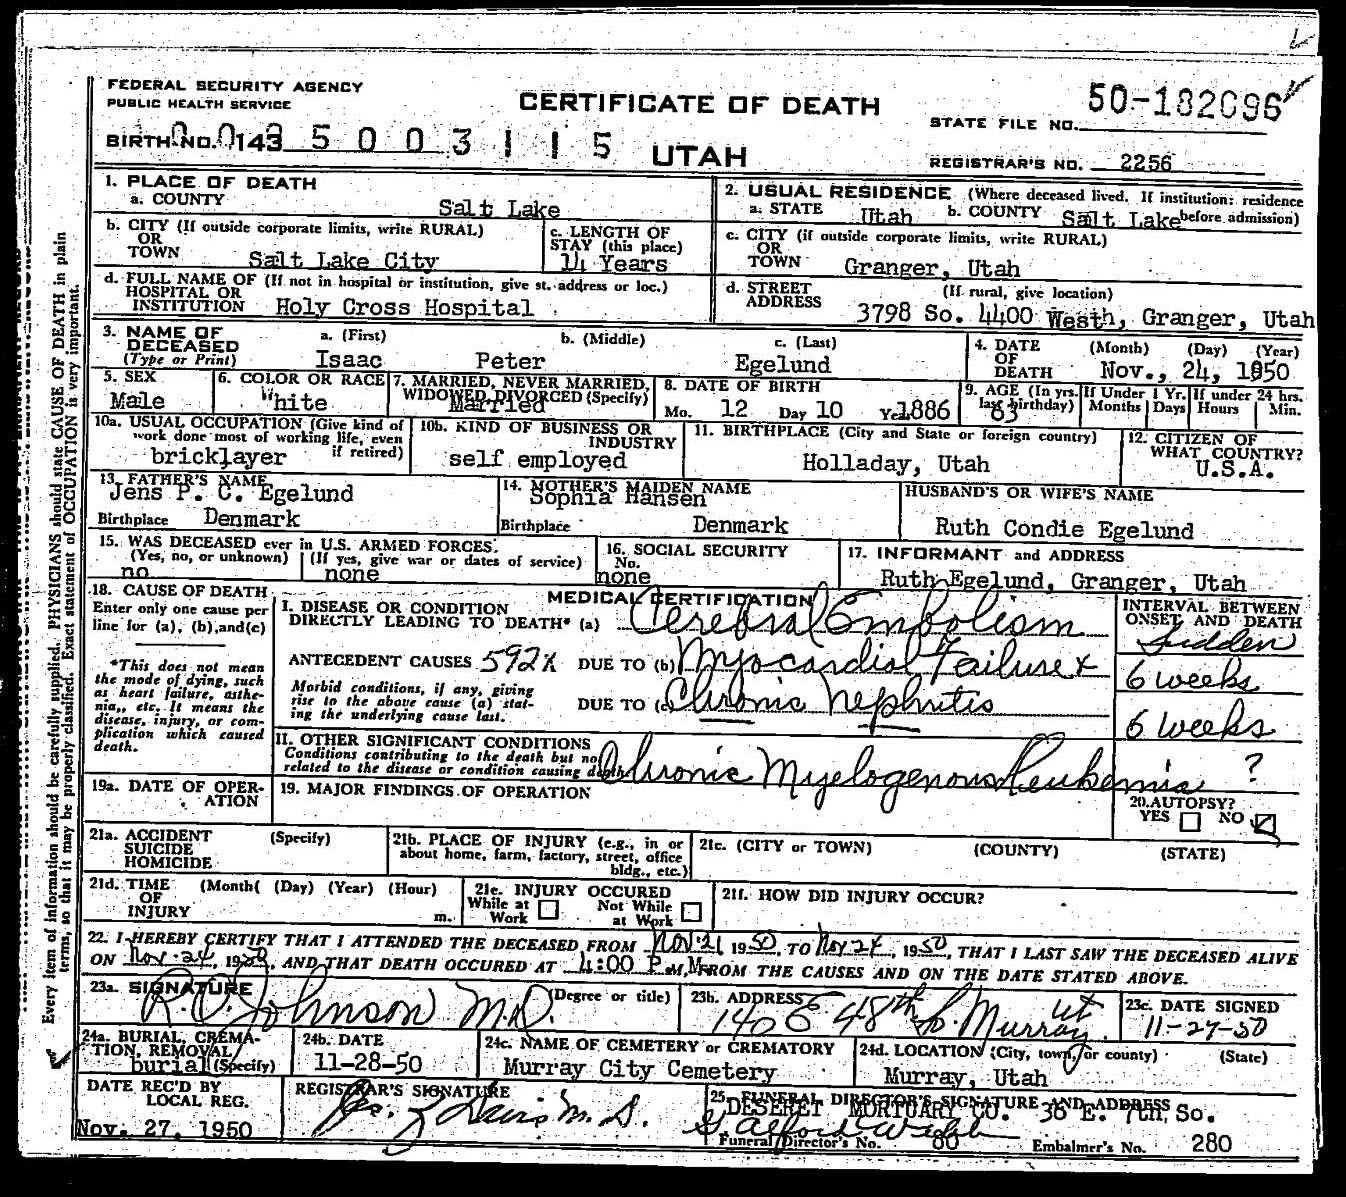 FEDERAL SECURITY AGENCY
PUBLIC HEALTH SERVICE
CERTIFICATE OF DEATH
UTAH
50-182096
STATE FILE NO.
BIRTH NO. 143 5 0 0 3 1 1 5
REGISTRAR'S NO. 2256
1. PLACE OF DEATH
a. COUNTY Salt Lake
b. CITY (If outside corporate limits, write RURAL)
OR
TOWN Salt Lake City
c. LENGTH OF
STAY (this place)
14 Years
d. FULL NAME OF (If not in hospital or institution, give st. address or loc.)
HOSPITAL OR
INSTITUTION Holy Cross Hospital
2. USUAL RESIDENCE (Where deceased lived. If institution: residence
before admission)
a. STATE Utah b. COUNTY Salt Lake
c. CITY (if outside corporate limits, write RURAL)
OR
TOWN Granger, Utah
d. STREET (If rural, give location)
ADDRESS 3798 So. 4400 West, Granger, Utah
3. NAME OF DECEASED (Type or Print)
a. (First) b. (Middle) c. (Last)
Isaac Peter Egelund
4. DATE OF DEATH (Month) (Day) (Year)
Nov., 24, 1950
5. SEX
Male
6. COLOR OR RACE
White
7. MARRIED, NEVER MARRIED,
WIDOWED, DIVORCED (Specify)
Married
8. DATE OF BIRTH
Mo. 12 Day 10 Year 1886
9. AGE (In yrs. last birthday) 63
If Under 1 Yr. Months Days
If under 24 hrs. Hours Min.
10a. USUAL OCCUPATION (Give kind of
work done most of working life, even
if retired)
bricklayer
10b. KIND OF BUSINESS OR
INDUSTRY
self employed
11. BIRTHPLACE (City and State or foreign country)
Holladay, Utah
12. CITIZEN OF
WHAT COUNTRY?
U.S.A.
13. FATHER'S NAME
Jens P. C. Egelund
Birthplace Denmark
14. MOTHER'S MAIDEN NAME
Sophia Hansen
Birthplace Denmark
HUSBAND'S OR WIFE'S NAME
Ruth Condie Egelund
15. WAS DECEASED ever in U.S. ARMED FORCES.
(Yes, no, or unknown) (If yes, give war or dates of service)
no none
16. SOCIAL SECURITY
No.
none
17. INFORMANT and ADDRESS
Ruth Egelund, Granger, Utah
18. CAUSE OF DEATH
Enter only one cause per
line for (a), (b), and (c)
*This does not mean
the mode of dying, such
as heart failure, asthe-
nia,, etc. It means the
disease, injury, or com-
plication which caused
death.
MEDICAL CERTIFICATION
I. DISEASE OR CONDITION
DIRECTLY LEADING TO DEATH* (a) Cerebral Embolism
ANTECEDENT CAUSES 592X DUE TO (b) Myocardial Failure +
Morbid conditions, if any, giving
rise to the above cause (a) stat-
ing the underlying cause last.
DUE TO (c) Chronic Nephritis
II. OTHER SIGNIFICANT CONDITIONS
Conditions contributing to the death but not
related to the disease or condition causing death
Chronic Myelogenous Leukemia
INTERVAL BETWEEN
ONSET AND DEATH
Sudden
6 weeks
6 weeks
?
19a. DATE OF OPER-
ATION
19. MAJOR FINDINGS OF OPERATION
20. AUTOPSY?
YES NO
21a. ACCIDENT (Specify)
SUICIDE
HOMICIDE
21b. PLACE OF INJURY (e.g., in or
about home, farm, factory, street, office
bldg., etc.)
21c. (CITY or TOWN) (COUNTY) (STATE)
21d. TIME (Month( (Day) (Year) (Hour)
OF
INJURY m.
21e. INJURY OCCURED
While at Work Not While at Work
21f. HOW DID INJURY OCCUR?
22. I HEREBY CERTIFY THAT I ATTENDED THE DECEASED FROM Nov. 21 1950, TO Nov 24, 1950, THAT I LAST SAW THE DECEASED ALIVE
ON Nov. 24, 1950, AND THAT DEATH OCCURED AT 4:00 P.M, FROM THE CAUSES AND ON THE DATE STATED ABOVE.
23a. SIGNATURE (Degree or title)
R.O. Johnson M.D.
23b. ADDRESS
140 E 48th So. Murray, Ut
23c. DATE SIGNED
11-27-50
24a. BURIAL, CREMA-
TION, REMOVAL (Specify)
burial
24b. DATE
11-28-50
24c. NAME OF CEMETERY or CREMATORY
Murray City Cemetery
24d. LOCATION (City, town, or county) (State)
Murray, Utah
DATE REC'D BY
LOCAL REG.
Nov. 27, 1950
REGISTRAR'S SIGNATURE
25. FUNERAL DIRECTOR'S SIGNATURE AND ADDRESS
DESERET MORTUARY CO. 36 E. 7th, So.
Funeral Director's No. 80 Embalmer's No. 280
Every item of information should be carefully supplied. PHYSICIANS should state CAUSE OF DEATH in plain
terms, so that it may be properly classified. Exact statement of OCCUPATION is very important.